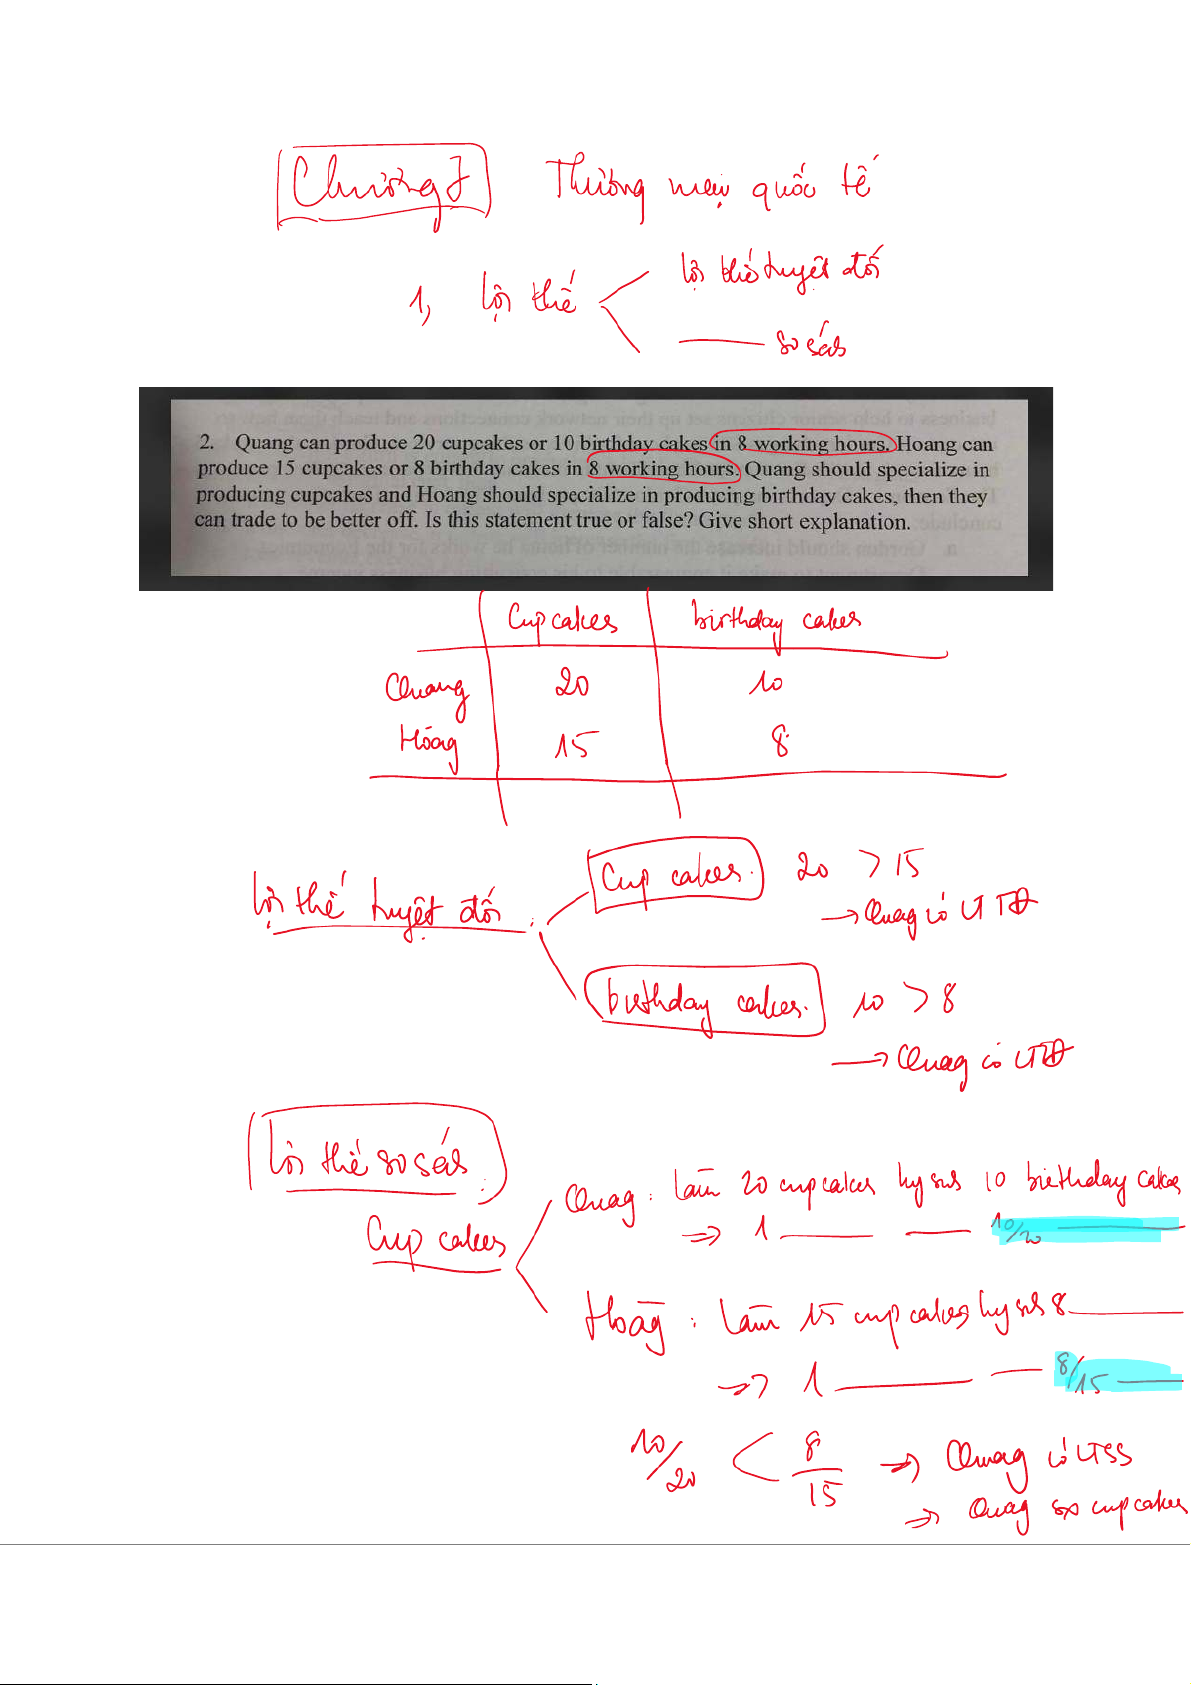 Chương 7 Thương mại quốc tế
1, lợi thế lợi thế tuyệt đối
so sánh
2. Quang can produce 20 cupcakes or 10 birthday cakes in 8 working hours. Hoang can
produce 15 cupcakes or 8 birthday cakes in 8 working hours. Quang should specialize in
producing cupcakes and Hoang should specialize in producing birthday cakes, then they
can trade to be better off. Is this statement true or false? Give short explanation.
Cupcakes birthday cakes
Quang 20 10
Hoàng 15 8
lợi thế tuyệt đối : Cup cakes. 20 > 15
→ Quang có LTTĐ
birthday cakes. 10 > 8
→ Quang có LTTĐ
Lợi thế so sánh :
Cup cakes
Quang : làm 20 cupcakes hy sinh 10 birthday cakes
⇒ 1 — — 10/20 —
Hoàng : làm 15 cupcakes hy sinh 8 —
⇒ 1 — — 8/15 —
10/20 < 8/15 ⇒ Quang có LTSS
⇒ Quang sx cupcakes